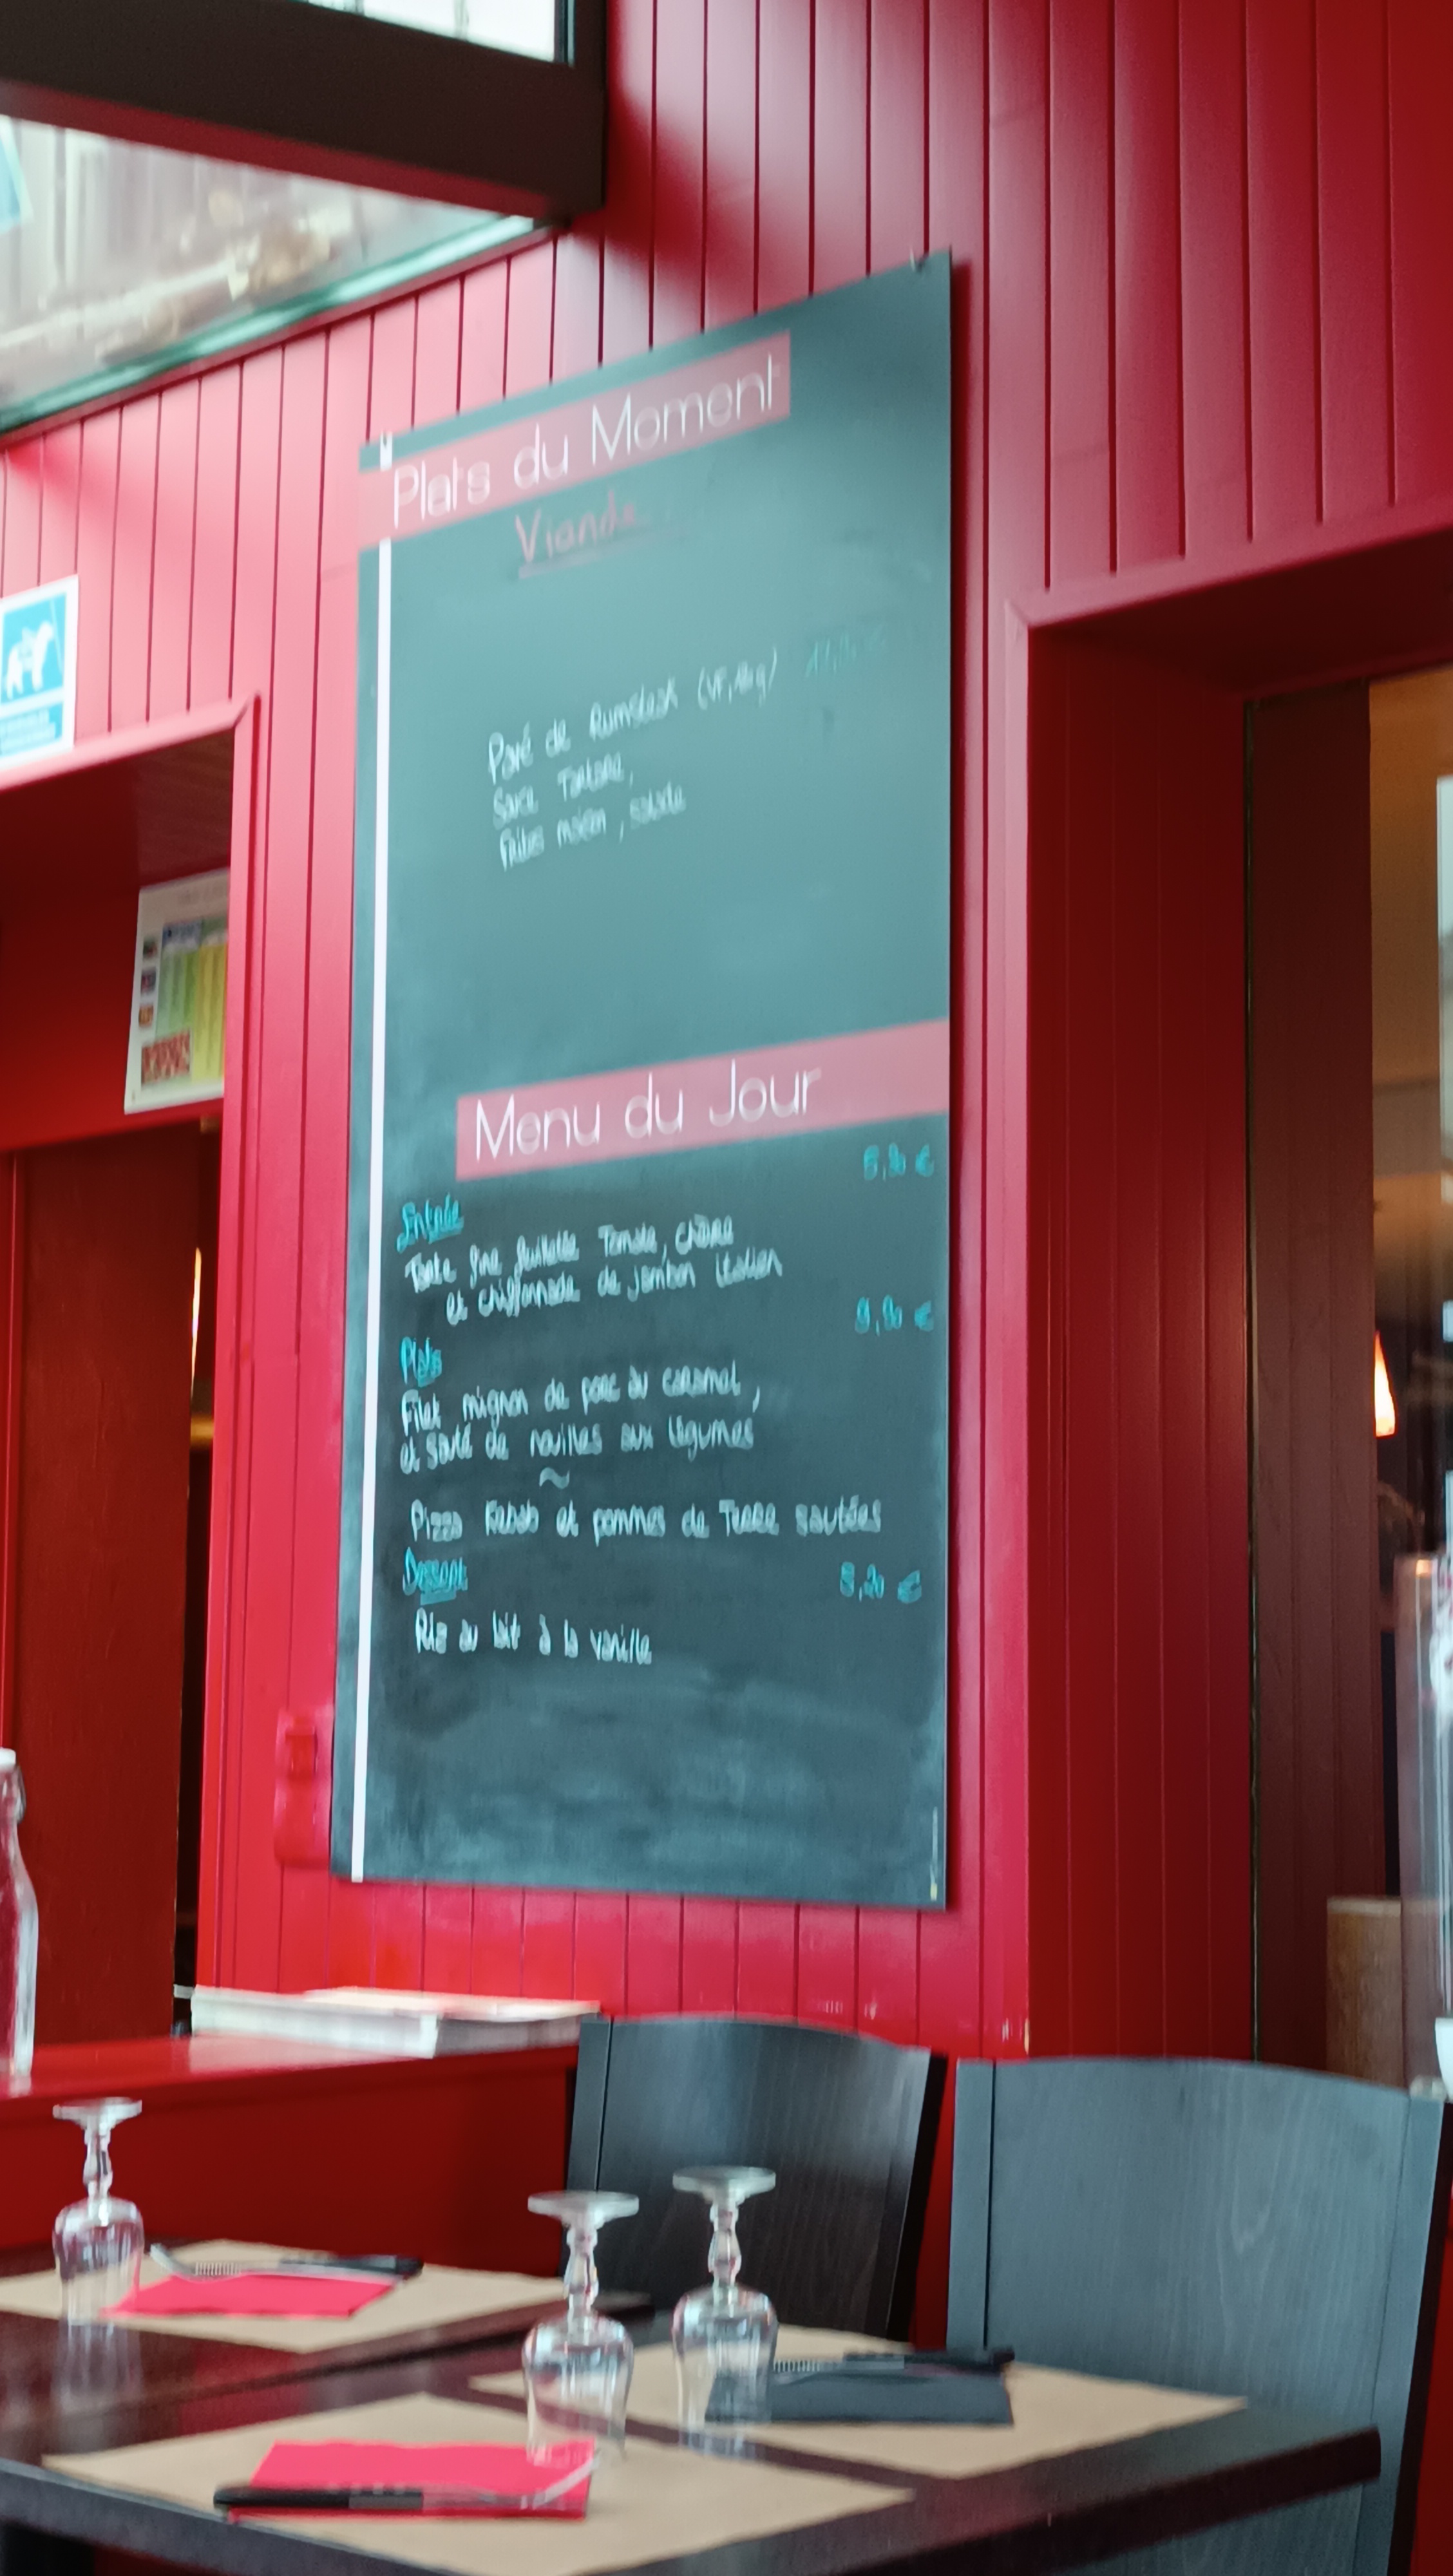 Plats du Moment
Viande
Pavé de Rumsteak
Sauce Tartare,
Frites maison, salade
Menu du Jour
5,90 €
Entrée
Tarte fine feuilletée Tomate, chèvre
et chiffonnade de jambon italien
9,90 €
Plats
Filet mignon de porc au caramel,
et sauté de nouilles aux légumes
~
Pizza Kebab et pommes de Terre sautées
Dessert
5,20 €
Riz au lait à la vanille